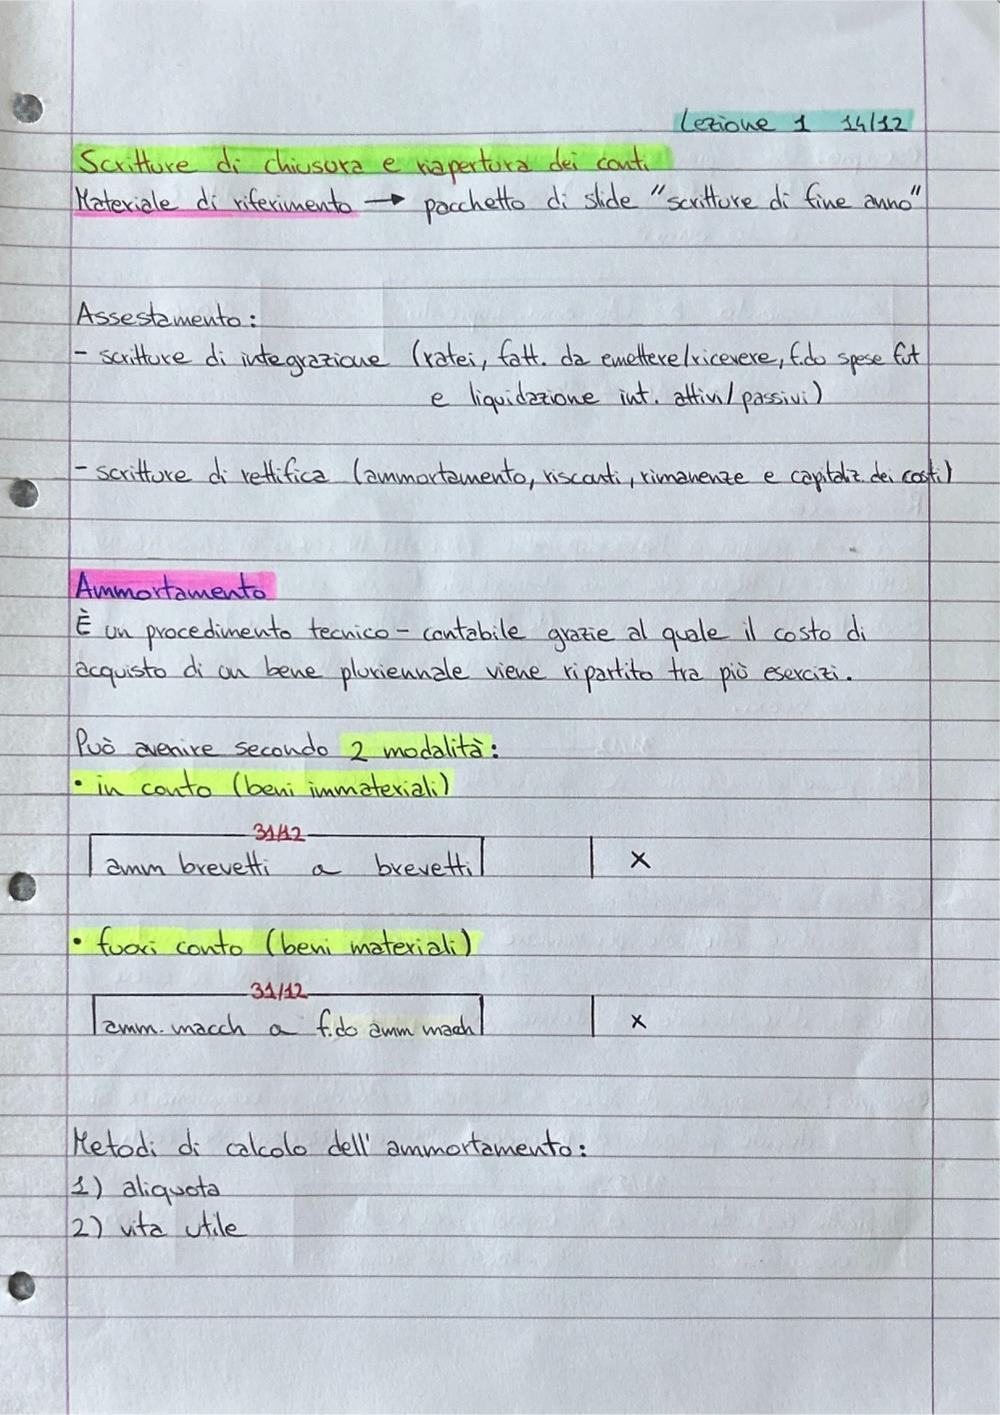 Lezione 1 14/12
Scritture di chiusura e riapertura dei conti
Materiale di riferimento → pacchetto di slide "scritture di fine anno"
Assestamento:
- scritture di integrazione (ratei, fatt. da emettere/ricevere, f.do spese fut
e liquidazione int. attivi/passivi)
- scritture di rettifica (ammortamento, riscanti, rimanenze e capitaliz. dei costi)
Ammortamento
È un procedimento tecnico-contabile grazie al quale il costo di
acquisto di un bene pluriennale viene ripartito tra più esercizi.
Può avenire secondo 2 modalità:
• in conto (beni immateriali)
31/12
amm brevetti a brevetti x
• fuori conto (beni materiali)
31/12
amm. macch a f.do amm mach x
Metodi di calcolo dell'ammortamento:
1) aliquota
2) vita utile